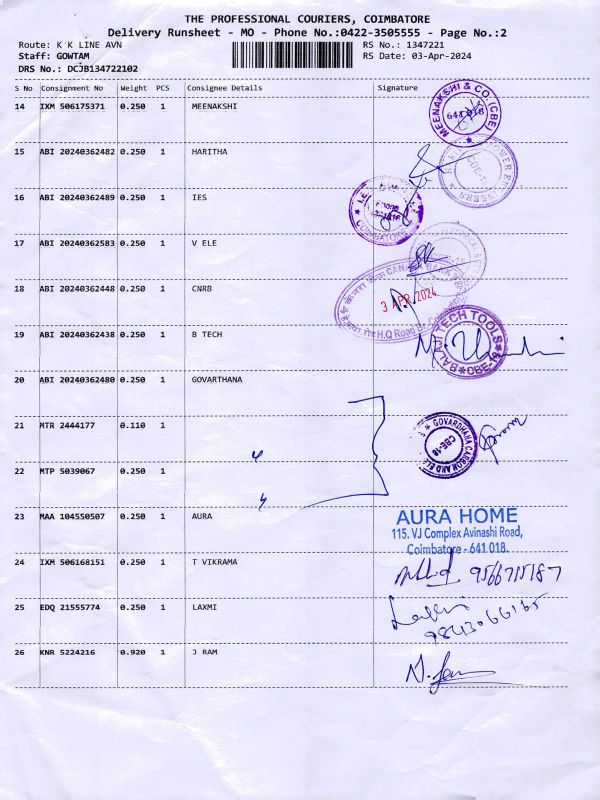 THE PROFESSIONAL COURIERS, COIMBATORE
Delivery Runsheet - MO - Phone No.:0422-3505555 - Page No.:2
Route: K K LINE AVN RS No.: 1347221
Staff: GOWTAM RS Date: 03-Apr-2024
DRS No.: DCJB134722102
S No Consignment No Weight PCS Consignee Details Signature
14 IXM 506175371 0.250 1 MEENAKSHI
MEENAKSHI & CO.(CBE)
641 018
15 ABI 20240362482 0.250 1 HARITHA
16 ABI 20240362489 0.250 1 IES
COIMBATORE
17 ABI 20240362583 0.250 1 V ELE
18 ABI 20240362448 0.250 1 CNRB
3 APR 2024
H.Q Road Br.
19 ABI 20240362438 0.250 1 B TECH
BALAJI TECH TOOLS
20 ABI 20240362480 0.250 1 GOVARTHANA
21 MTR 2444177 0.110 1
GOVARDHANA
CBE-18
22 MTP 5039067 0.250 1
23 MAA 104550507 0.250 1 AURA
AURA HOME
115. VJ Complex Avinashi Road,
Coimbatore - 641 018.
24 IXM 506168151 0.250 1 T VIKRAMA
9566715187
25 EDQ 21555774 0.250 1 LAXMI
26 KNR 5224216 0.920 1 J RAM